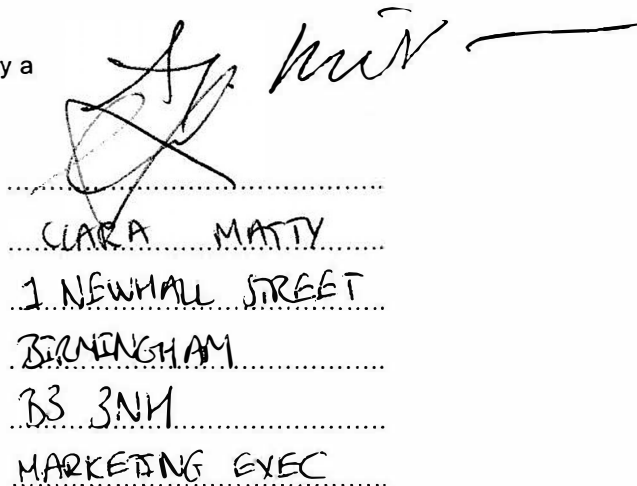 y a
CLARA MATTY
1 NEWHALL STREET
BIRMINGHAM
B3 3NH
MARKETING EXEC